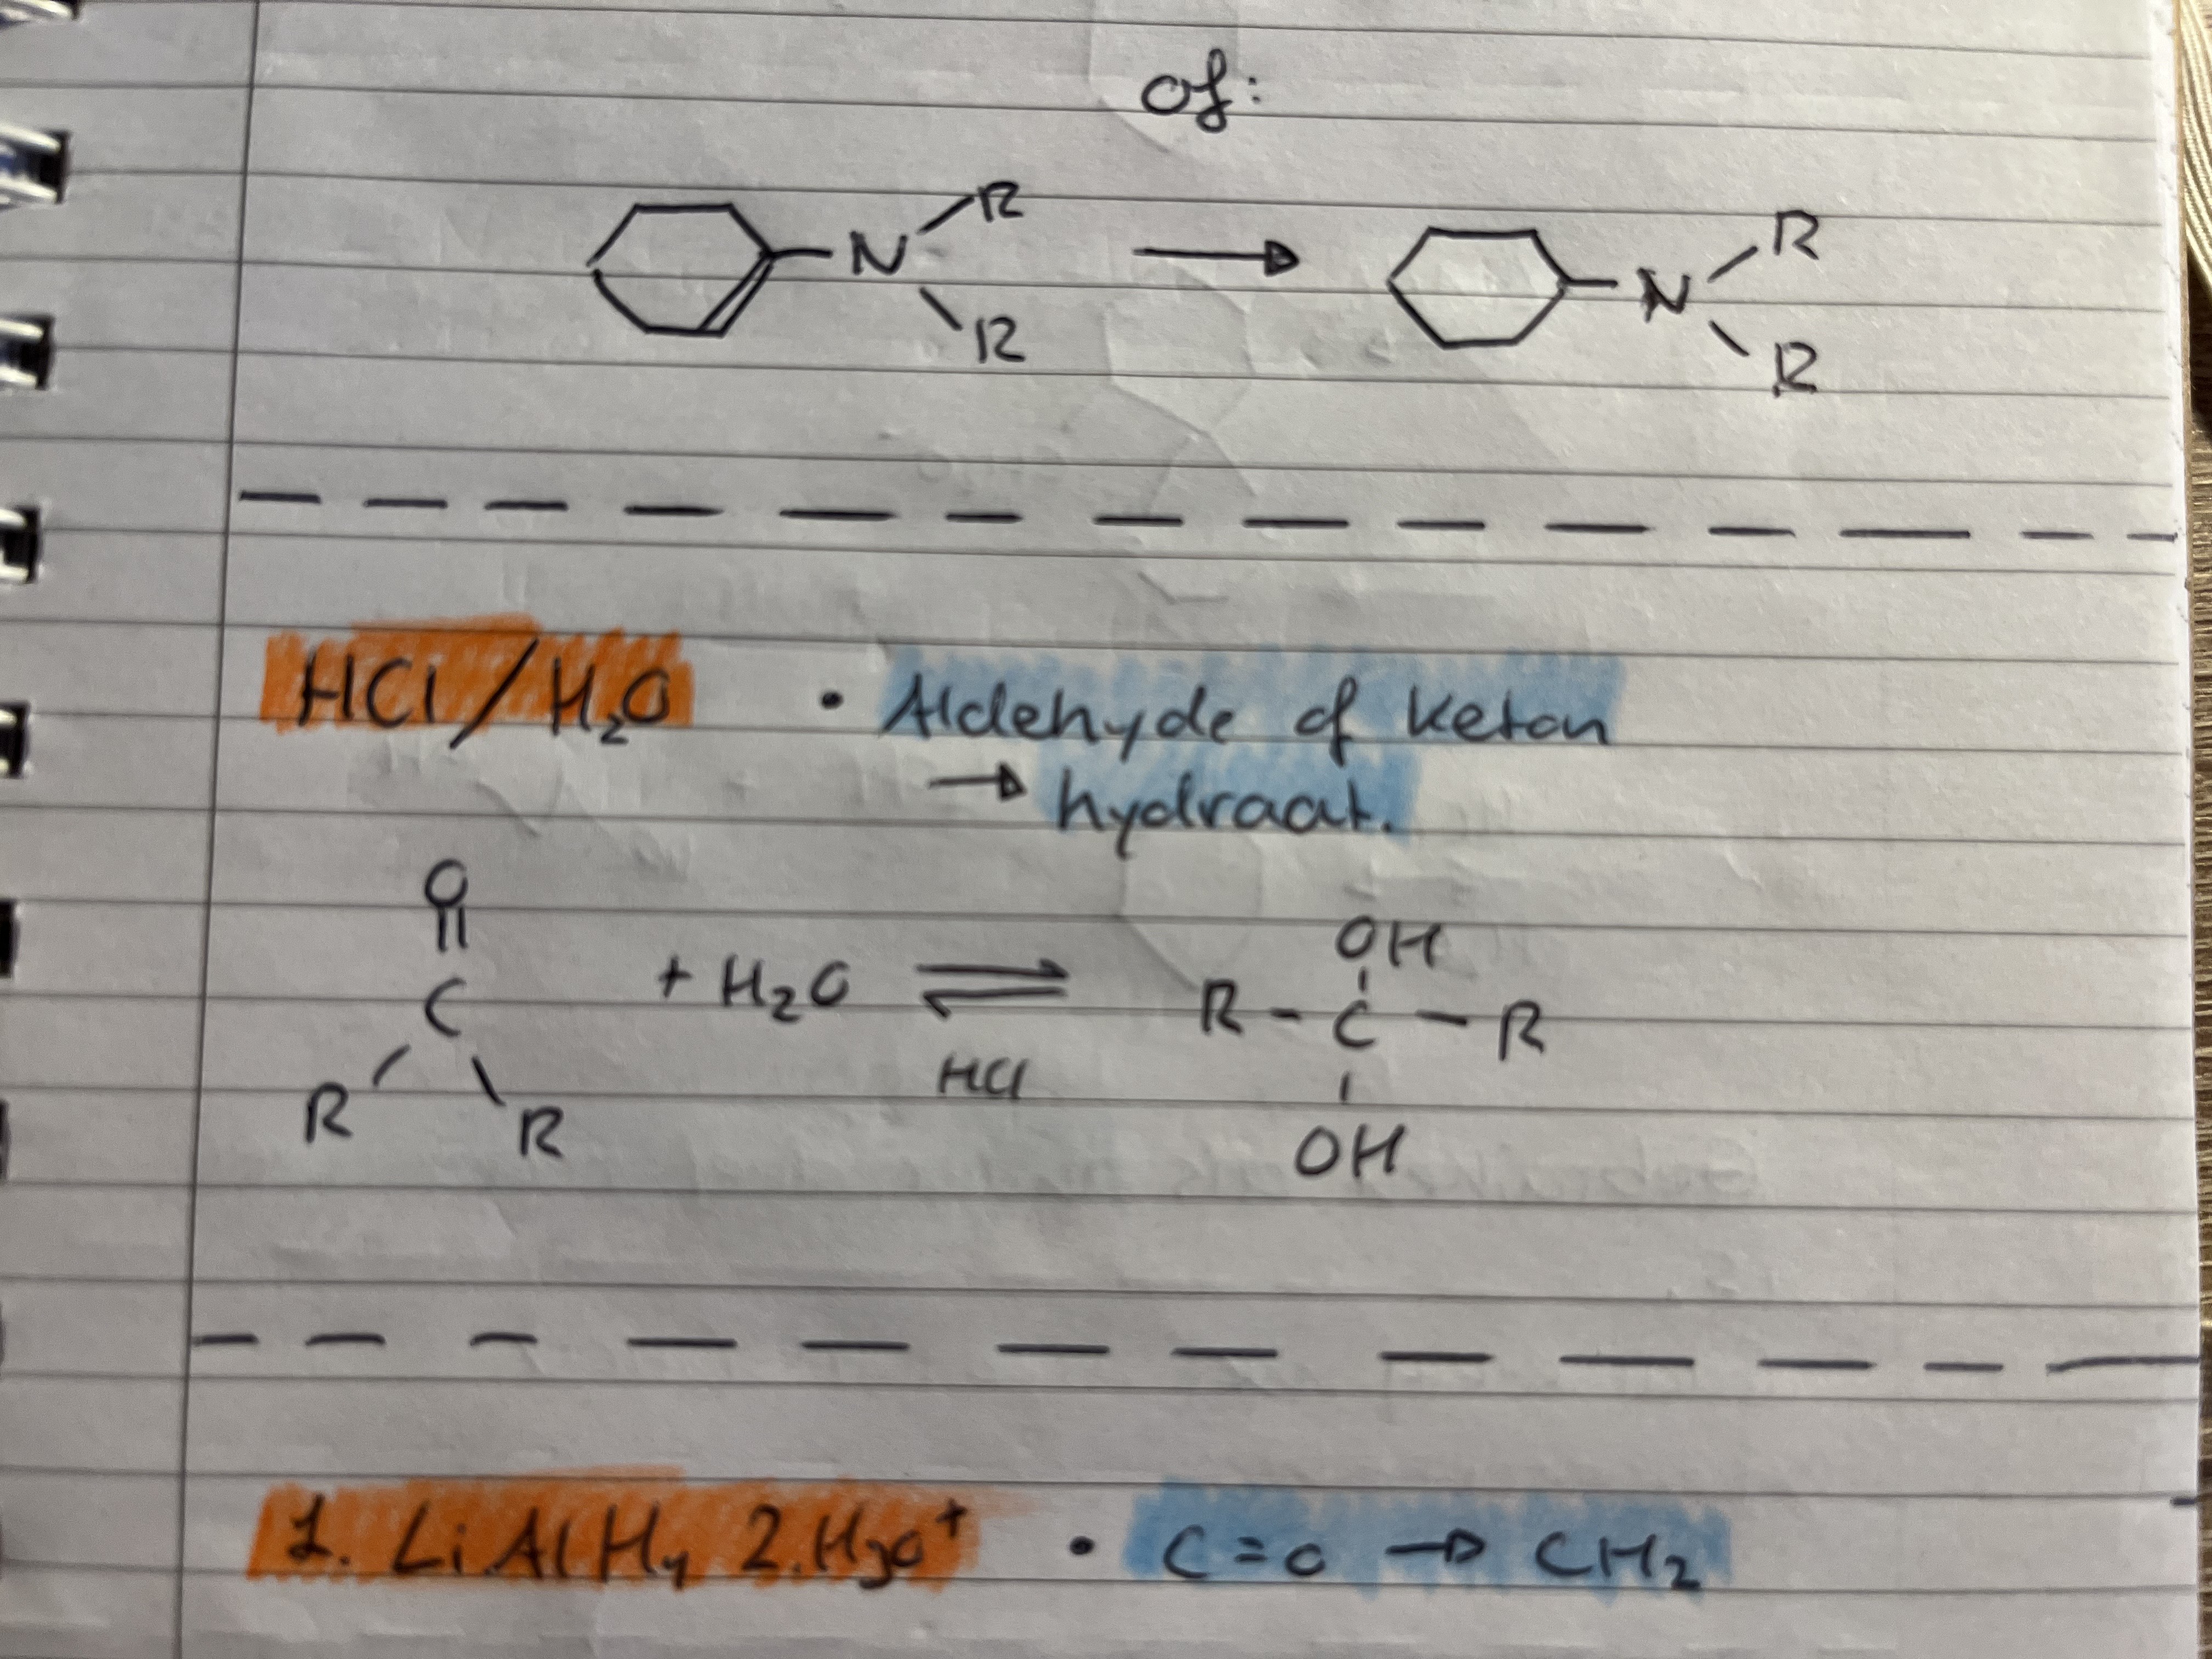 of:
R
N → N R
R R
HCl/H₂O • Aldehyde of keton
→ hydraat.
O OH
C + H₂O ⇌ R - C - R
R R HCl OH
1. LiAlH₄ 2. H₃O⁺ • C=O → CH₂